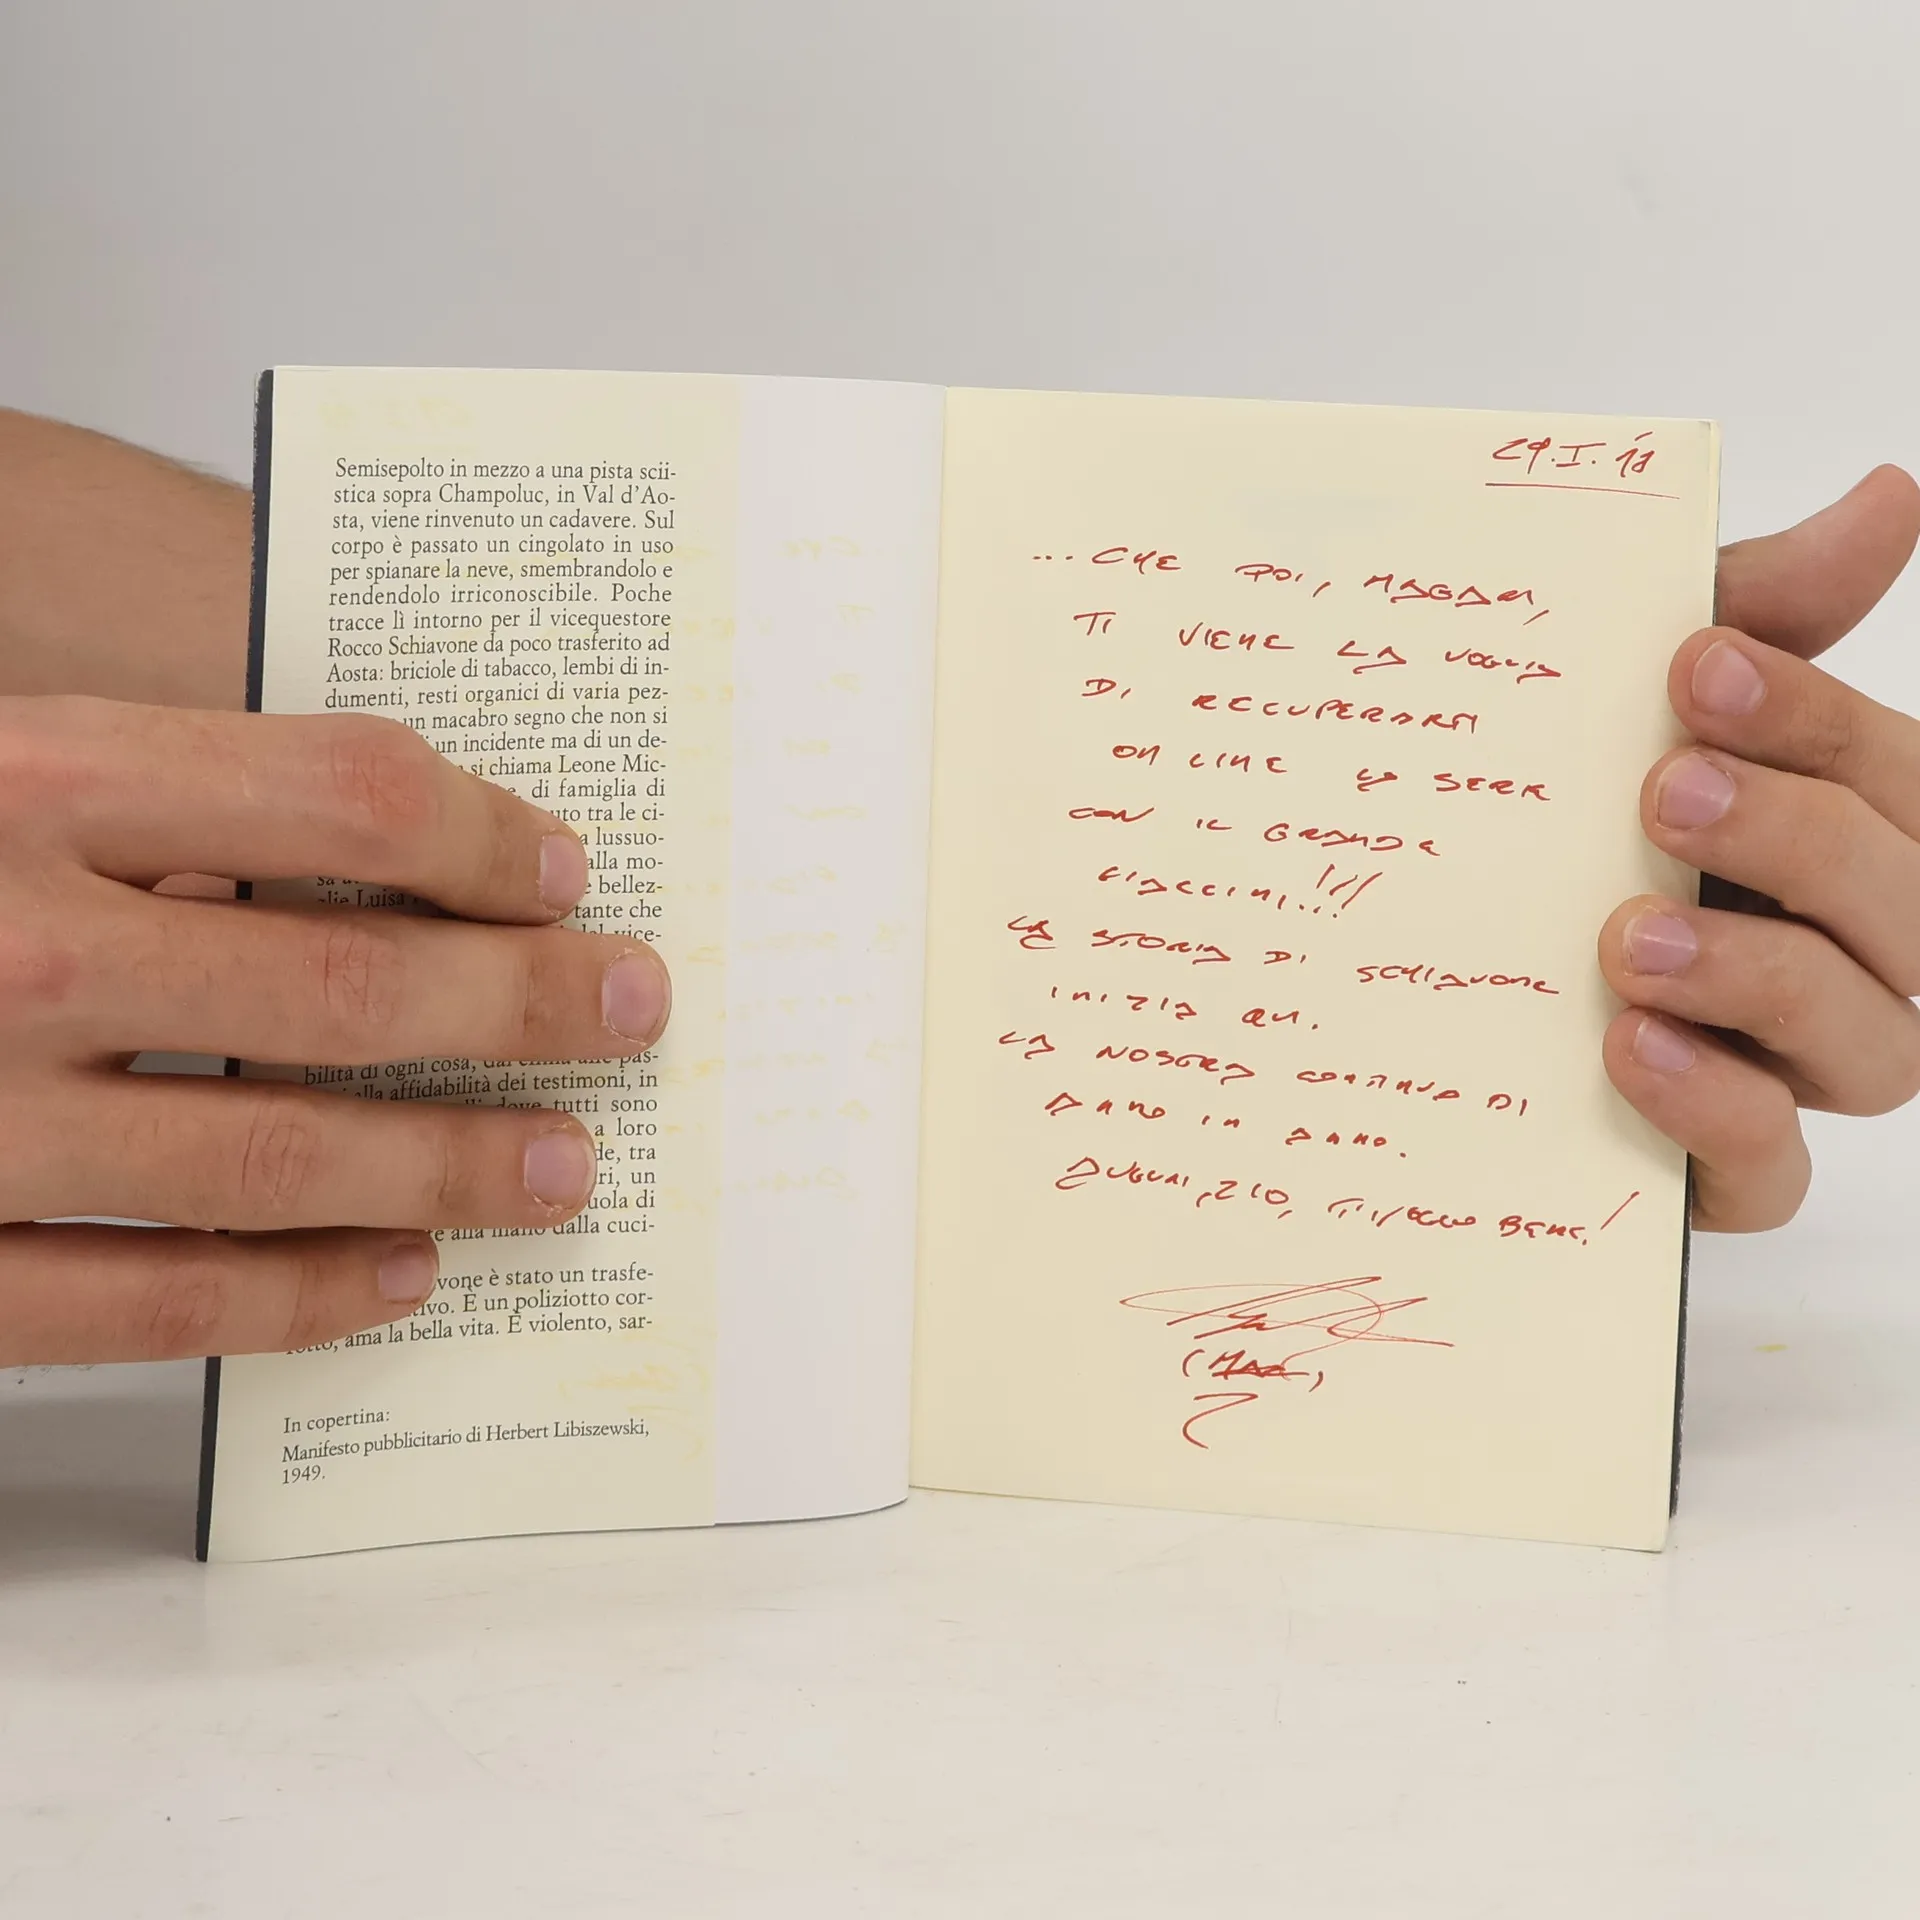 Semisepolto in mezzo a una pista scii-
stica sopra Champoluc, in Val d'Ao-
sta, viene rinvenuto un cadavere. Sul
corpo è passato un cingolato in uso
per spianare la neve, smembrandolo e
rendendolo irriconoscibile. Poche
tracce lì intorno per il vicequestore
Rocco Schiavone da poco trasferito ad
Aosta: briciole di tabacco, lembi di in-
dumenti, resti organici di varia pez-
un macabro segno che non si
un incidente ma di un de-
si chiama Leone Mic-
di famiglia di
tra le ci-
a lussuo-
alla mo-
bellez-
Luisa
tante che
vice-
bilità di ogni cosa, pas-
affidabilità dei testimoni, in
dove tutti sono
a loro
tra
un
di
alla mano dalla cuci-
è stato un trasfe-
È un poliziotto cor-
rotto, ama la bella vita. È violento, sar-
In copertina:
Manifesto pubblicitario di Herbert Libiszewski,
1949.
29.I.
... CHE POI, MAGARI,
TI VIENE LA VOGLIA
DI RECUPERARTI
ON LINE LA SERIE
CON IL GRANDE
GIALLINI...!!!
LA STORIA DI SCHIAVONE
INIZIA QUI.
LA NOSTRA CONTINUA DI
ANNO IN ANNO.
AUGURI, ZIO, TI VOGLIO BENE!